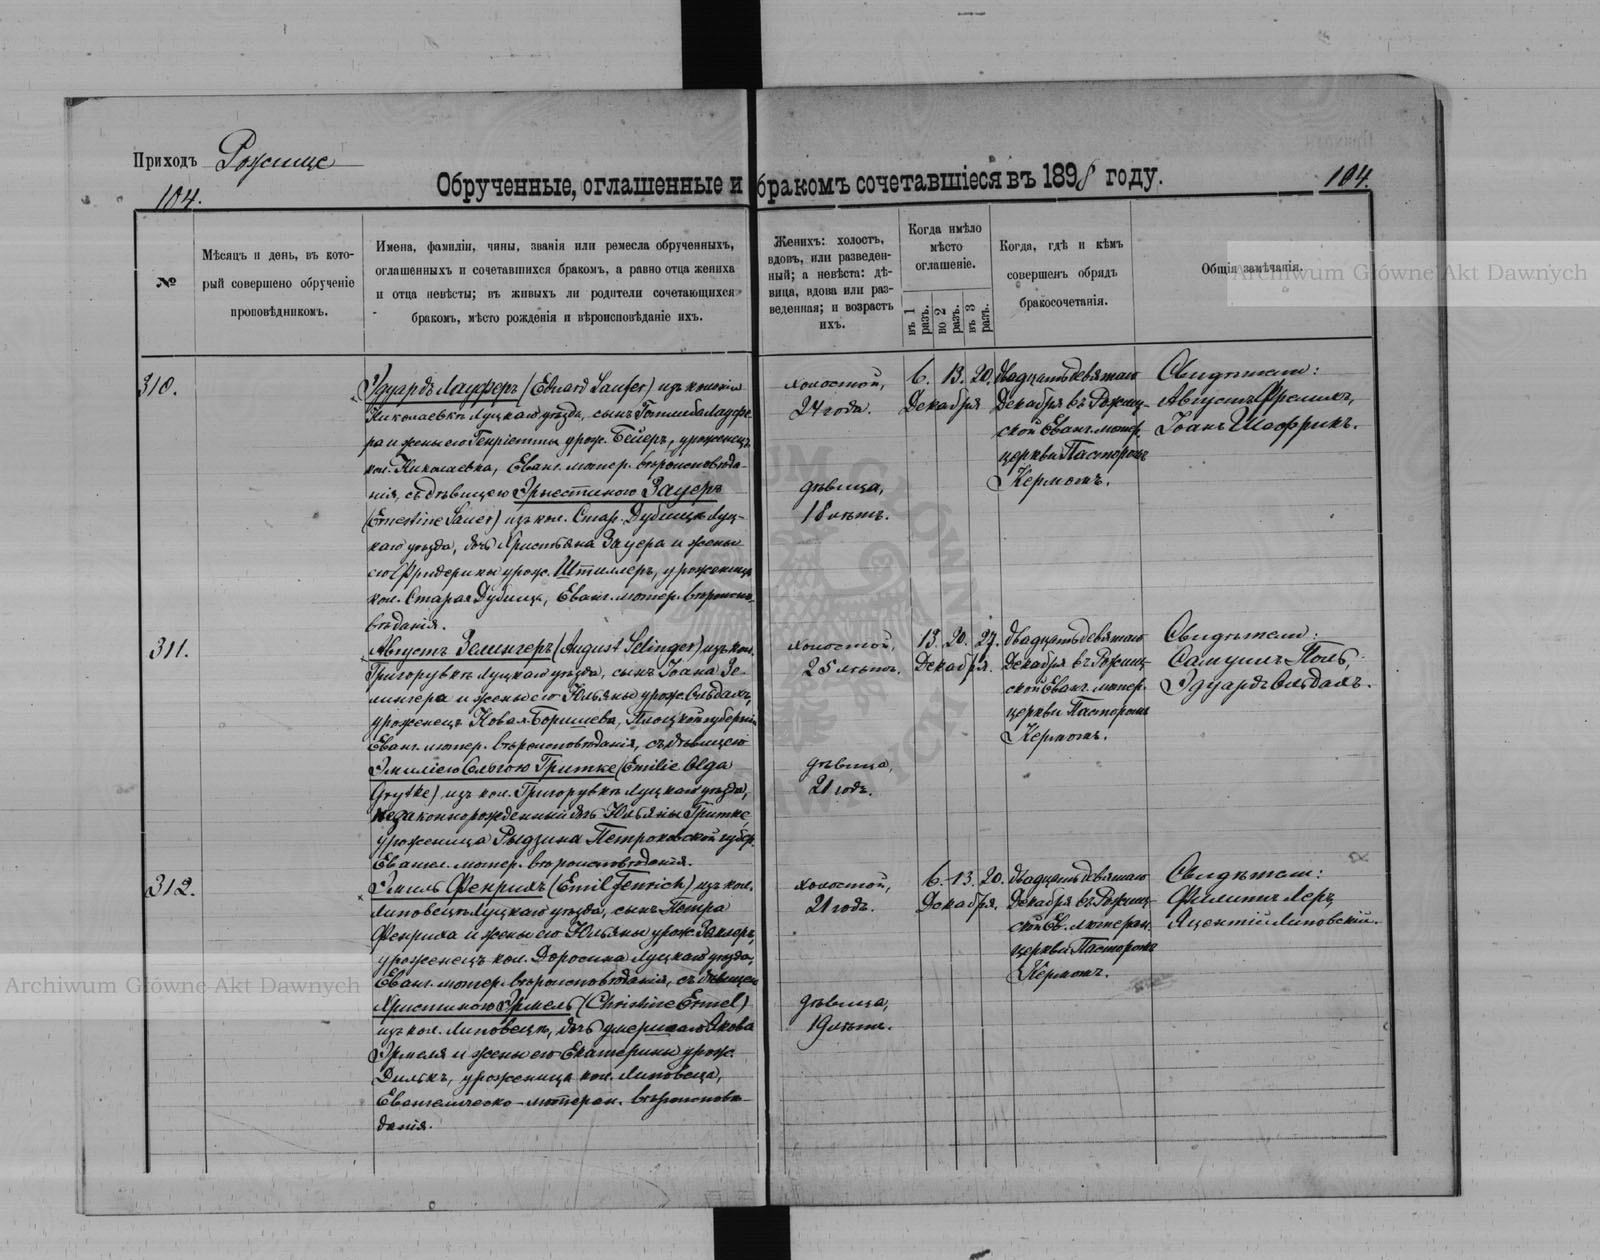 Приходъ Рожище
104.
Обрученные, оглашенные и бракомъ сочетавшіеся въ 1898 году.
104.
№
Мѣсяцъ и день, въ кото-
рый совершено обрученіе
проповѣдникомъ.
Имена, фамиліи, чины, званія или ремесла обрученныхъ,
оглашенныхъ и сочетавшихся бракомъ, а равно отца жениха
и отца невѣсты; въ живыхъ ли родители сочетающихся
бракомъ, мѣсто рожденія и вѣроисповѣданіе ихъ.
Женихъ: холостъ,
вдовъ, или разведен-
ный; а невѣста: дѣ-
вица, вдова или раз-
веденная; и возрастъ
ихъ.
Когда имѣло
мѣсто
оглашеніе.
въ 1 разъ.
во 2 разъ.
въ 3 разъ.
Когда, гдѣ и кѣмъ
совершенъ обрядъ
бракосочетанія.
Общія замѣчанія.
Archiwum Główne Akt Dawnych
310.
Эдуардъ Лауферъ (Eduard Laufer) изъ колоніи
Николаевкѣ Луцкаго уѣзда, сынъ Готлиба Лауфе-
ра и жены его Генріетты урож. Бейеръ, уроженецъ
кол. Николаевка, Еванг. лютер. вѣроисповѣда-
нія, съ дѣвицею Эрнестиною Зауеръ
(Ernestine Sauer) изъ кол. Стар. Дубищѣ Луц-
каго уѣзда, дочь Христьяна Зауера и жены
его Фридерики урож. Штиллеръ, уроженица
кол. Старая Дубища, Еванг. лютер. вѣроиспо-
вѣданія.
холостой,
24 года.
дѣвица,
18 лѣтъ.
6. 13. 20.
Декабря
Двадцать девятаго
Декабря въ Рожищ-
ской Еванг. лютер.
церкви Пасторомъ
Кермомъ.
Свидѣтели:
Августъ Фрелихъ,
Іоанъ Шаффрикъ.
311.
Августъ Зелингеръ (August Selinger) изъ кол.
Григорувкѣ Луцкаго уѣзда, сынъ Іоана Зе-
лингера и жены его Юльяны урож. Ольдахъ,
уроженецъ Новая-Боришева, Плоцкой губерніи
Еванг. лютер. вѣроисповѣданія, съ дѣвицею
Эмиліею Ольгою Гритке (Emilie Olga
Grytke) изъ кол. Григорувкѣ Луцкаго уѣзда,
незаконнорожденный дочь Юльяны Гритке,
уроженица Рыдзина Петроковской губер.
Евангел. лютер. вѣроисповѣданія.
холостой,
25 лѣтъ.
дѣвица,
21 годъ.
13. 20. 27.
Декабря.
Двадцать девятаго
Декабря въ Рожищ-
ской Еванг. лютер.
церкви Пасторомъ
Кермомъ.
Свидѣтели:
Самуилъ Поль,
Эдуардъ Ольдахъ.
312.
Эмиль Фенрихъ (Emil Fenrich) изъ кол.
Липовецъ Луцкаго уѣзда, сынъ Петра
Фенриха и жены его Юльяны урож. Зейлеръ,
уроженецъ кол. Доросина Луцкаго уѣзда,
Еванг. лютер. вѣроисповѣданія, съ дѣвицею
Христиною Эрмель (Christine Ermel)
изъ кол. Липовецъ, дочь умершаго Якова
Эрмеля и жены его Екатерины урож.
Дилькъ, уроженица кол. Липовеца,
Евангелическо-лютеран. вѣроисповѣ-
данія.
холостой,
21 годъ.
дѣвица,
19 лѣтъ.
6. 13. 20.
Декабря.
Двадцать девятаго
Декабря въ Рожищ-
ской Ев. лютеран.
церкви Пасторомъ
Кермомъ.
Свидѣтели:
Филиппъ Леръ,
Яцентій Липовскій.
Archiwum Główne Akt Dawnych